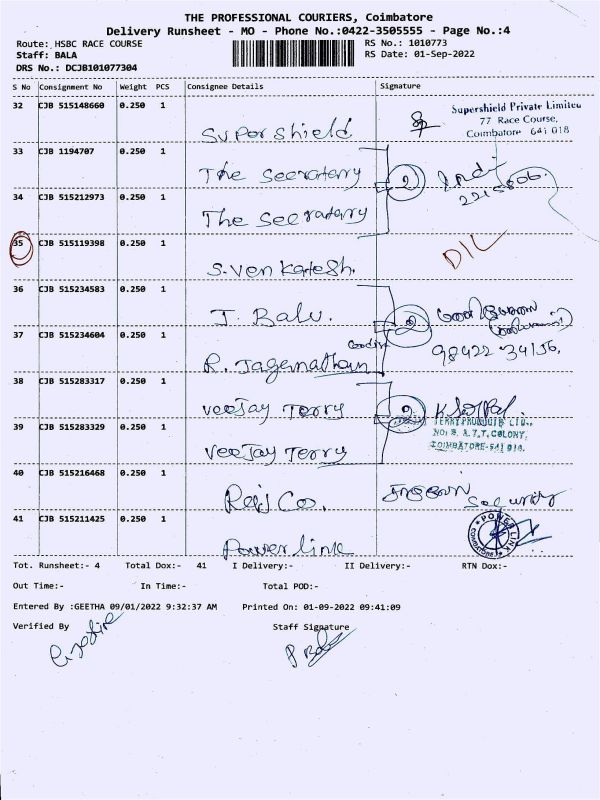 THE PROFESSIONAL COURIERS, Coimbatore
Delivery Runsheet - MO - Phone No.:0422-3505555 - Page No.:4
Route: HSBC RACE COURSE
RS No.: 1010773
Staff: BALA
RS Date: 01-Sep-2022
DRS No.: DCJB101077304
S No Consignment No Weight PCS Consignee Details Signature
32 CJB 515148660 0.250 1
Supershield
Supershield Private Limited
77 Race Course,
Coimbatore 641 018
33 CJB 1194707 0.250 1
The Secratary
2
34 CJB 515212973 0.250 1
The Secratary
35 CJB 515119398 0.250 1
S. Venkatesh.
D/L
36 CJB 515234583 0.250 1
J. Balu.
2
37 CJB 515234604 0.250 1
R. Jagernathan
98422 34156.
38 CJB 515283317 0.250 1
Veejay Terry
2
TERRY PRODUCTS LTD.,
NO: 8, A.T.T. COLONY,
COIMBATORE-641 018.
39 CJB 515283329 0.250 1
Veejay Terry
40 CJB 515216468 0.250 1
Raj Co.
Security
41 CJB 515211425 0.250 1
Power link
POWER LINK
COIMBATORE
Tot. Runsheet:- 4 Total Dox:- 41 I Delivery:- II Delivery:- RTN Dox:-
Out Time:- In Time:- Total POD:-
Entered By :GEETHA 09/01/2022 9:32:37 AM Printed On: 01-09-2022 09:41:09
Verified By Staff Signature
P Bala